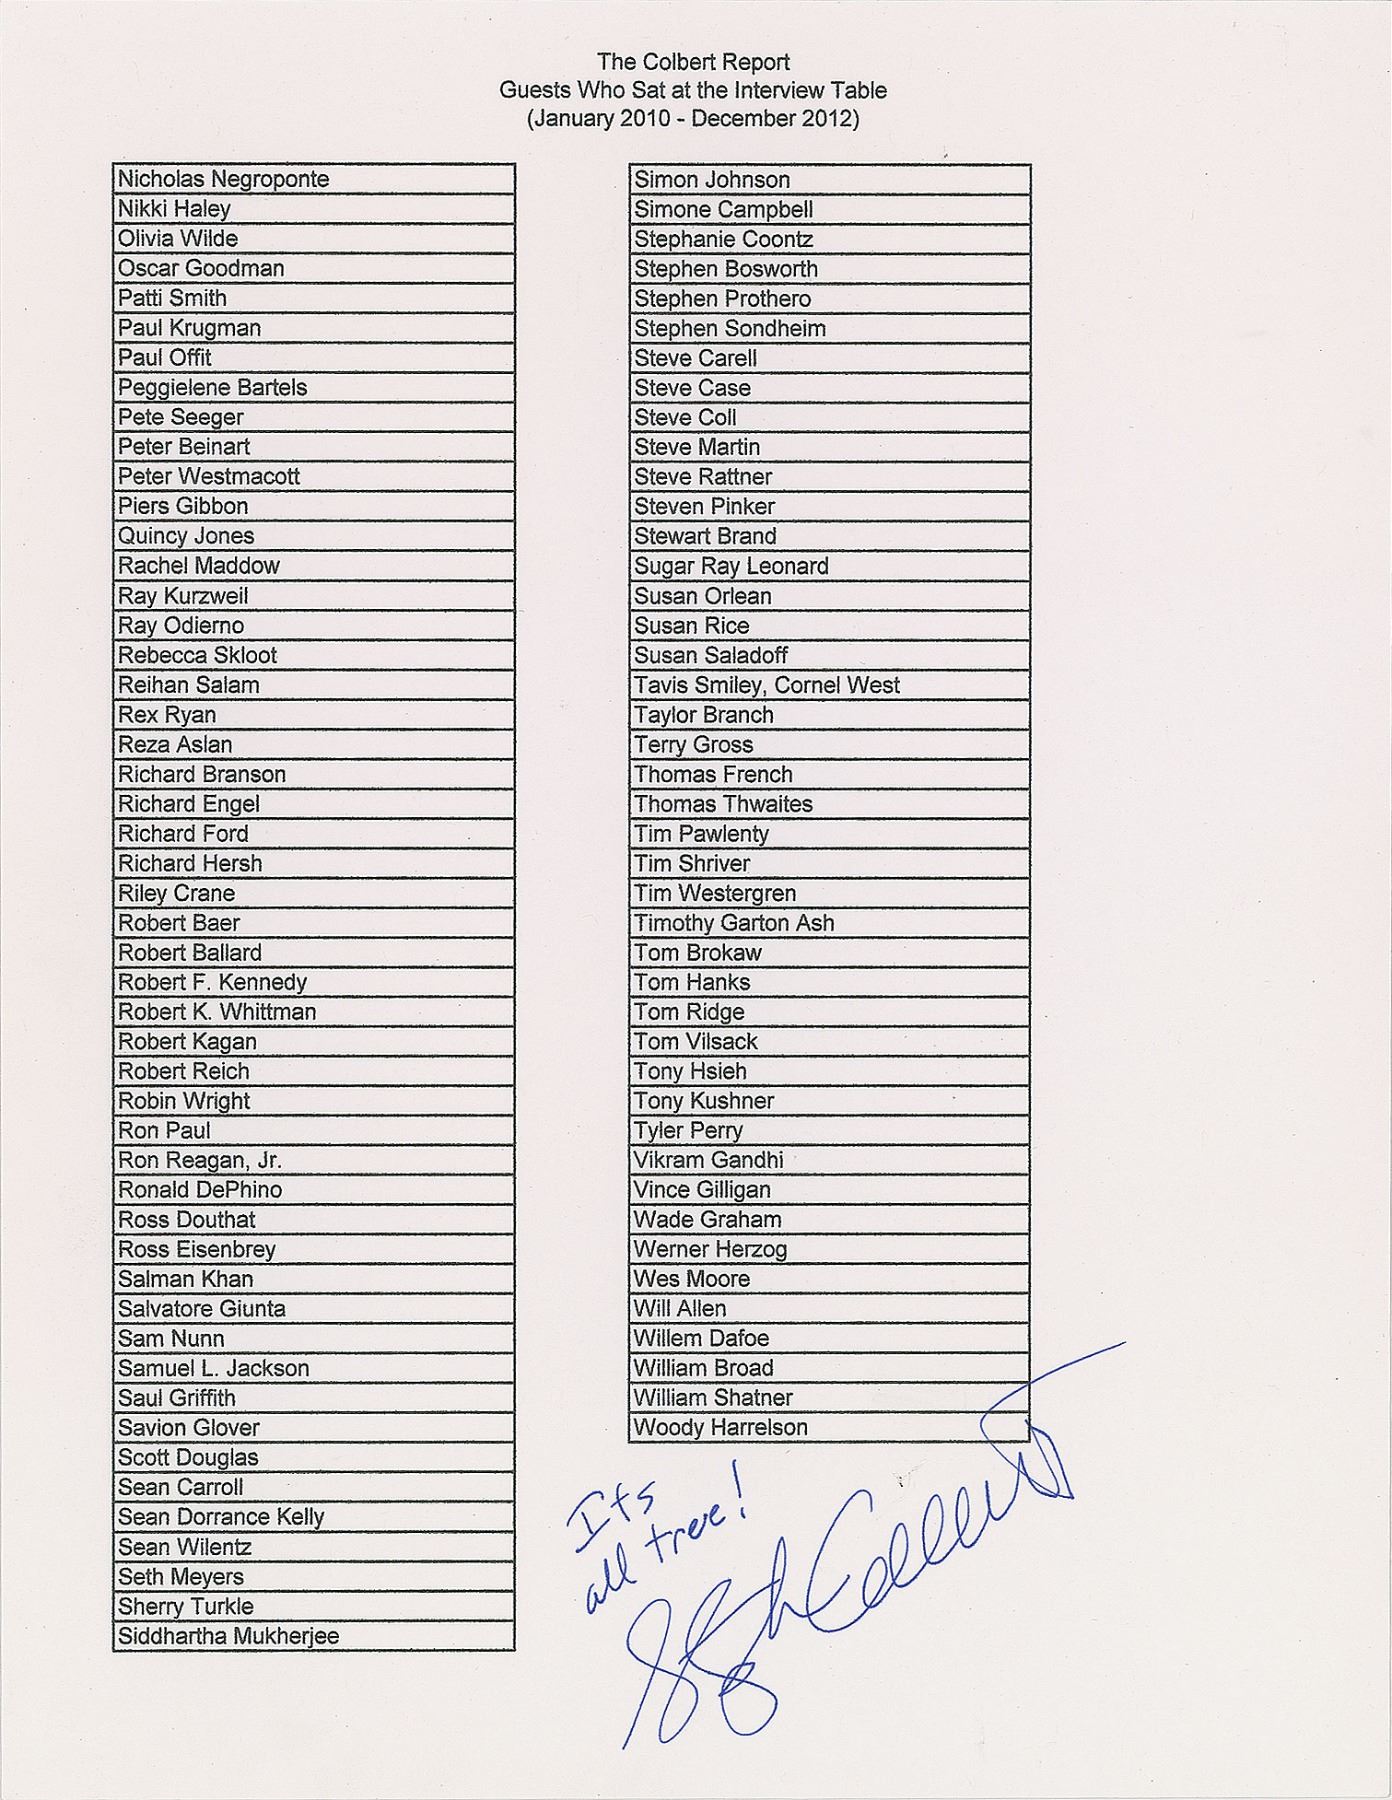 The Colbert Report
Guests Who Sat at the Interview Table
(January 2010 - December 2012)
Nicholas Negroponte
Nikki Haley
Olivia Wilde
Oscar Goodman
Patti Smith
Paul Krugman
Paul Offit
Peggielene Bartels
Pete Seeger
Peter Beinart
Peter Westmacott
Piers Gibbon
Quincy Jones
Rachel Maddow
Ray Kurzweil
Ray Odierno
Rebecca Skloot
Reihan Salam
Rex Ryan
Reza Aslan
Richard Branson
Richard Engel
Richard Ford
Richard Hersh
Riley Crane
Robert Baer
Robert Ballard
Robert F. Kennedy
Robert K. Whittman
Robert Kagan
Robert Reich
Robin Wright
Ron Paul
Ron Reagan, Jr.
Ronald DePhino
Ross Douthat
Ross Eisenbrey
Salman Khan
Salvatore Giunta
Sam Nunn
Samuel L. Jackson
Saul Griffith
Savion Glover
Scott Douglas
Sean Carroll
Sean Dorrance Kelly
Sean Wilentz
Seth Meyers
Sherry Turkle
Siddhartha Mukherjee
Simon Johnson
Simone Campbell
Stephanie Coontz
Stephen Bosworth
Stephen Prothero
Stephen Sondheim
Steve Carell
Steve Case
Steve Coll
Steve Martin
Steve Rattner
Steven Pinker
Stewart Brand
Sugar Ray Leonard
Susan Orlean
Susan Rice
Susan Saladoff
Tavis Smiley, Cornel West
Taylor Branch
Terry Gross
Thomas French
Thomas Thwaites
Tim Pawlenty
Tim Shriver
Tim Westergren
Timothy Garton Ash
Tom Brokaw
Tom Hanks
Tom Ridge
Tom Vilsack
Tony Hsieh
Tony Kushner
Tyler Perry
Vikram Gandhi
Vince Gilligan
Wade Graham
Werner Herzog
Wes Moore
Will Allen
Willem Dafoe
William Broad
William Shatner
Woody Harrelson
Its
all true!
Stephen Colbert